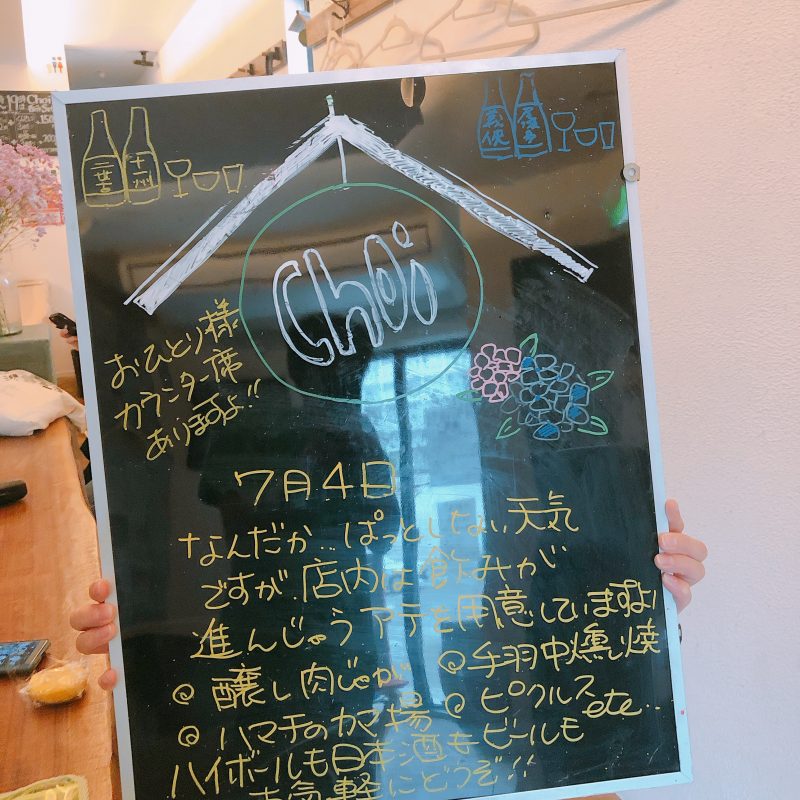 十二州
Choi
おひとり様
カウンター席
ありますよ!!
7月4日
なんだか…ぱっとしない天気
ですが、店内は飲みが
進んじゅうアテを用意していますよ!
◎醸し肉じゃが ◎手羽中燻し焼
◎ハマチのカマ場 ◎ピクルス etc..
ハイボールも日本酒もビールも
お気軽にどうぞ!!